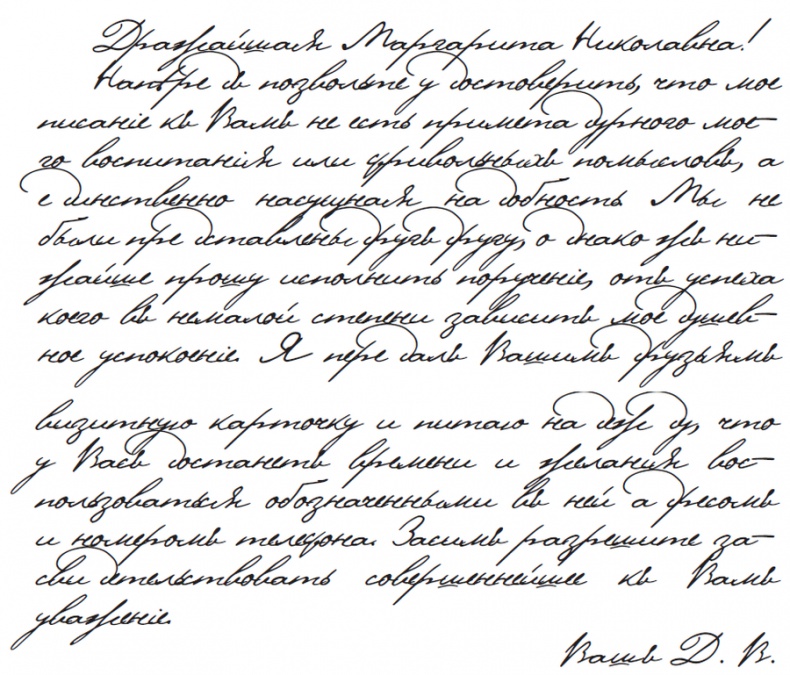 Дражайшая Маргарита Николавна!
Напредъ позвольте удостоверить, что мое
писаніе къ Вамъ не есть примета дурного мое-
го воспитанія или фривольныхъ помысловъ, а
единственно насущная надобность. Мы не
были представлены другъ другу, однако жъ ни-
жайше прошу исполнить порученіе, отъ успеха
коего въ немалой степени зависитъ мое душев-
ное успокоеніе. Я передалъ Вашимъ друзьямъ
визитную карточку и питаю надежду, что
у Васъ достанетъ времени и желанія вос-
пользоваться обозначенными въ ней адресомъ
и номеромъ телефона. Засимъ разрешите за-
свидетельствовать совершеннейшее къ Вамъ
уваженіе.
Вашъ Д. В.